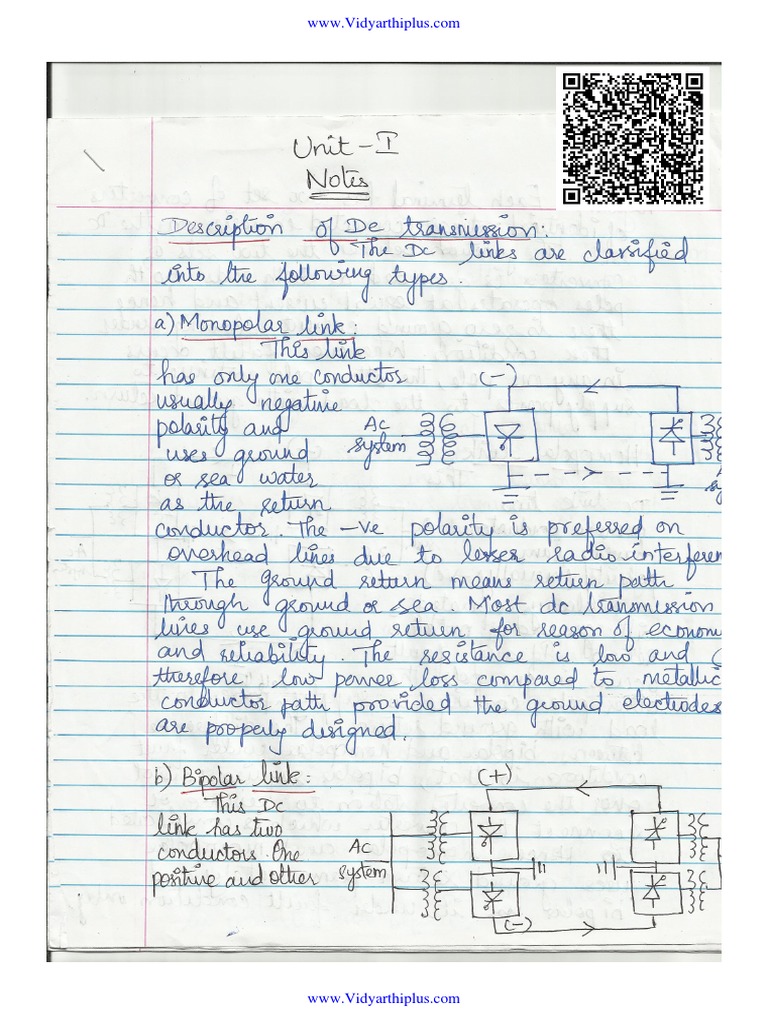 www.Vidyarthiplus.com
Unit - I
Notes
Description of Dc transmission:
The Dc links are classified
into the following types.
a) Monopolar link:
This link
has only one conductor
usually negative
polarity and
uses ground
or sea water
as the return
(-)
AC
system
A
sy
conductor. The -ve polarity is preferred on
overhead lines due to lesser radio interferen
The ground return means return path
through ground or sea. Most dc transmission
lines use ground return for reason of econom
and reliability. The resistance is low and
therefore low power loss compared to metallic
conductor path provided the ground electrodes
are properly designed.
b) Bipolar link:
This Dc
link has two
conductors. One
positive and other
(+)
AC
system
(-)
www.Vidyarthiplus.com